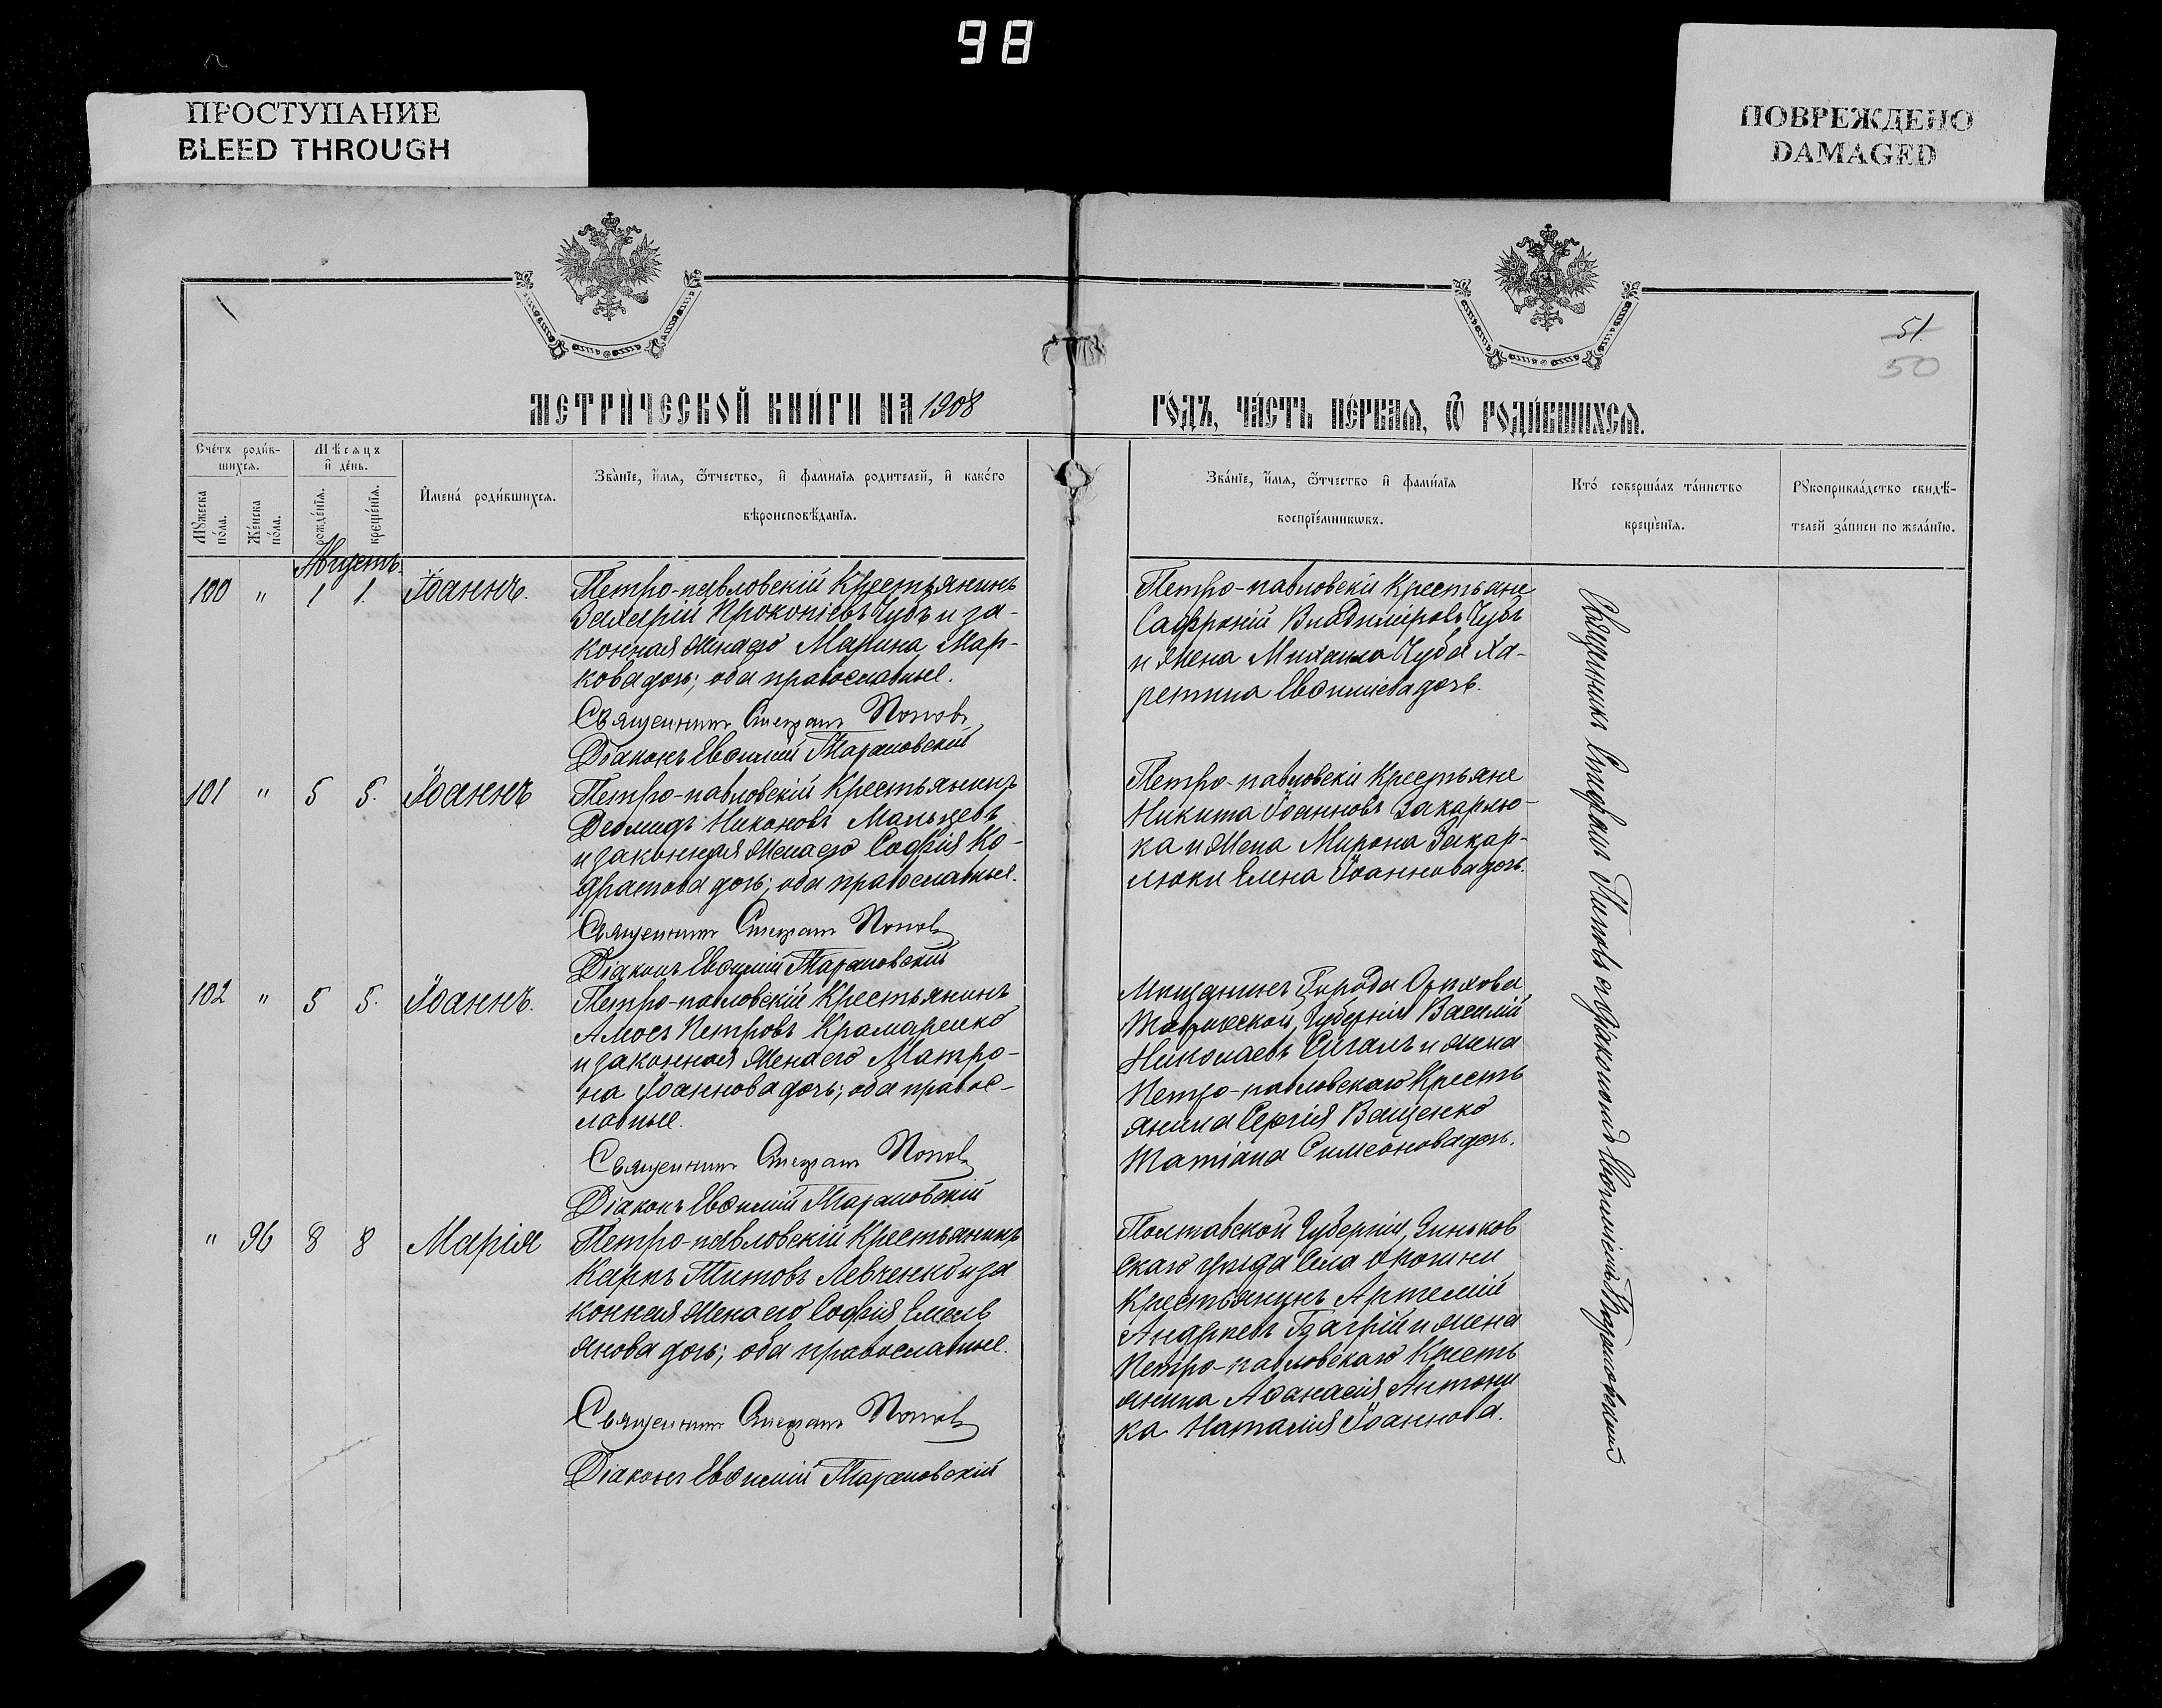 98
ПРОСТУПАНИЕ
BLEED THROUGH
ПОВРЕЖДЕНО
DAMAGED
51.
50
МЕТРИ́ЧЕСКОЙ КНИ́ГИ НА 1908
ГО́ДЪ, ЧА́СТЬ ПЕ́РВАЯ, Ѿ РОДИ́ВШИХСЯ.
Сче́тъ роди́в-
шихся.
Мꙋжеска по́ла.
Же́нска по́ла.
Мѣ́сяцъ
и҆ де́нь.
рожде́нїя.
креще́нїя.
И҆мена́ роди́вшихся.
Зва́нїе, и҆́мя, ѻ҆́тчество, и҆ фами́лїя роди́телей, и҆ како́го
вѣроисповѣ́данїя.
Зва́нїе, и҆́мя, ѻ҆́тчество и҆ фами́лїя
воспрїе́мникѡвъ.
Кто̀ соверша́лъ та́инство
креще́нїя.
Рꙋкоприкла́дство свидѣ́-
телей за́писи по жела́нїю.
Августъ.
100 " 1 1. Іоаннъ.
Петро-павловскій Крестьянинъ
Захарій Прокопіевъ Чубъ и за-
конная жена его Марина Мар-
кова дочь; оба православные.
Священникъ Стефанъ Поповъ
Діаконъ Евѳимій Тарановскій
Петро-павловскіи Крестьяне
Сафроній Владиміровъ Чубъ
и жена Михаила Чуба Ха-
ретина Евѳиміева дочь.
101 " 5 5. Іоаннъ
Петро-павловскій Крестьянинъ
Деомидъ Никоновъ Мальцевъ
и законная жена его Софія Ко-
дратова дочь; оба православные.
Священникъ Стефанъ Поповъ
Діаконъ Евѳимій Тарановскій
Петро-павловскіи Крестьяне
Никита Іоанновъ Закарлю-
ка и жена Мирона Закар-
люки Елена Іоаннова дочь.
102 " 5 5. Іоаннъ.
Петро-павловскій Крестьянинъ
Амосъ Петровъ Крамаренко
и законная жена его Матро-
на Іоаннова дочь; оба правос-
лавные.
Священникъ Стефанъ Поповъ
Діаконъ Евѳимій Тарановскій
Мещанинъ Города Орѣхова
Таврической Губерніи Василій
Николаевъ и жена
Петро-павловскаго Кресть
янина Сергія Ващенко
Татіана Симеонова дочь.
" 96 8 8 Марія
Петро-павловскій Крестьянинъ
Карпъ Титовъ Левченко и за
конная жена его Софія Емель
янова дочь; оба православные.
Священникъ Стефанъ Поповъ
Діаконъ Евѳимій Тарановскій
Полтавской Губерніи, Зиньков
скаго уѣзда Села Опошни
Крестьянинъ Артемій
Андреевъ и жена
Петро-павловскаго Кресть
янина Аѳанасія Антони
ка Наталія Іоаннова.
Священникъ Стефанъ Поповъ съ діакономъ Евѳиміемъ Тарановскимъ